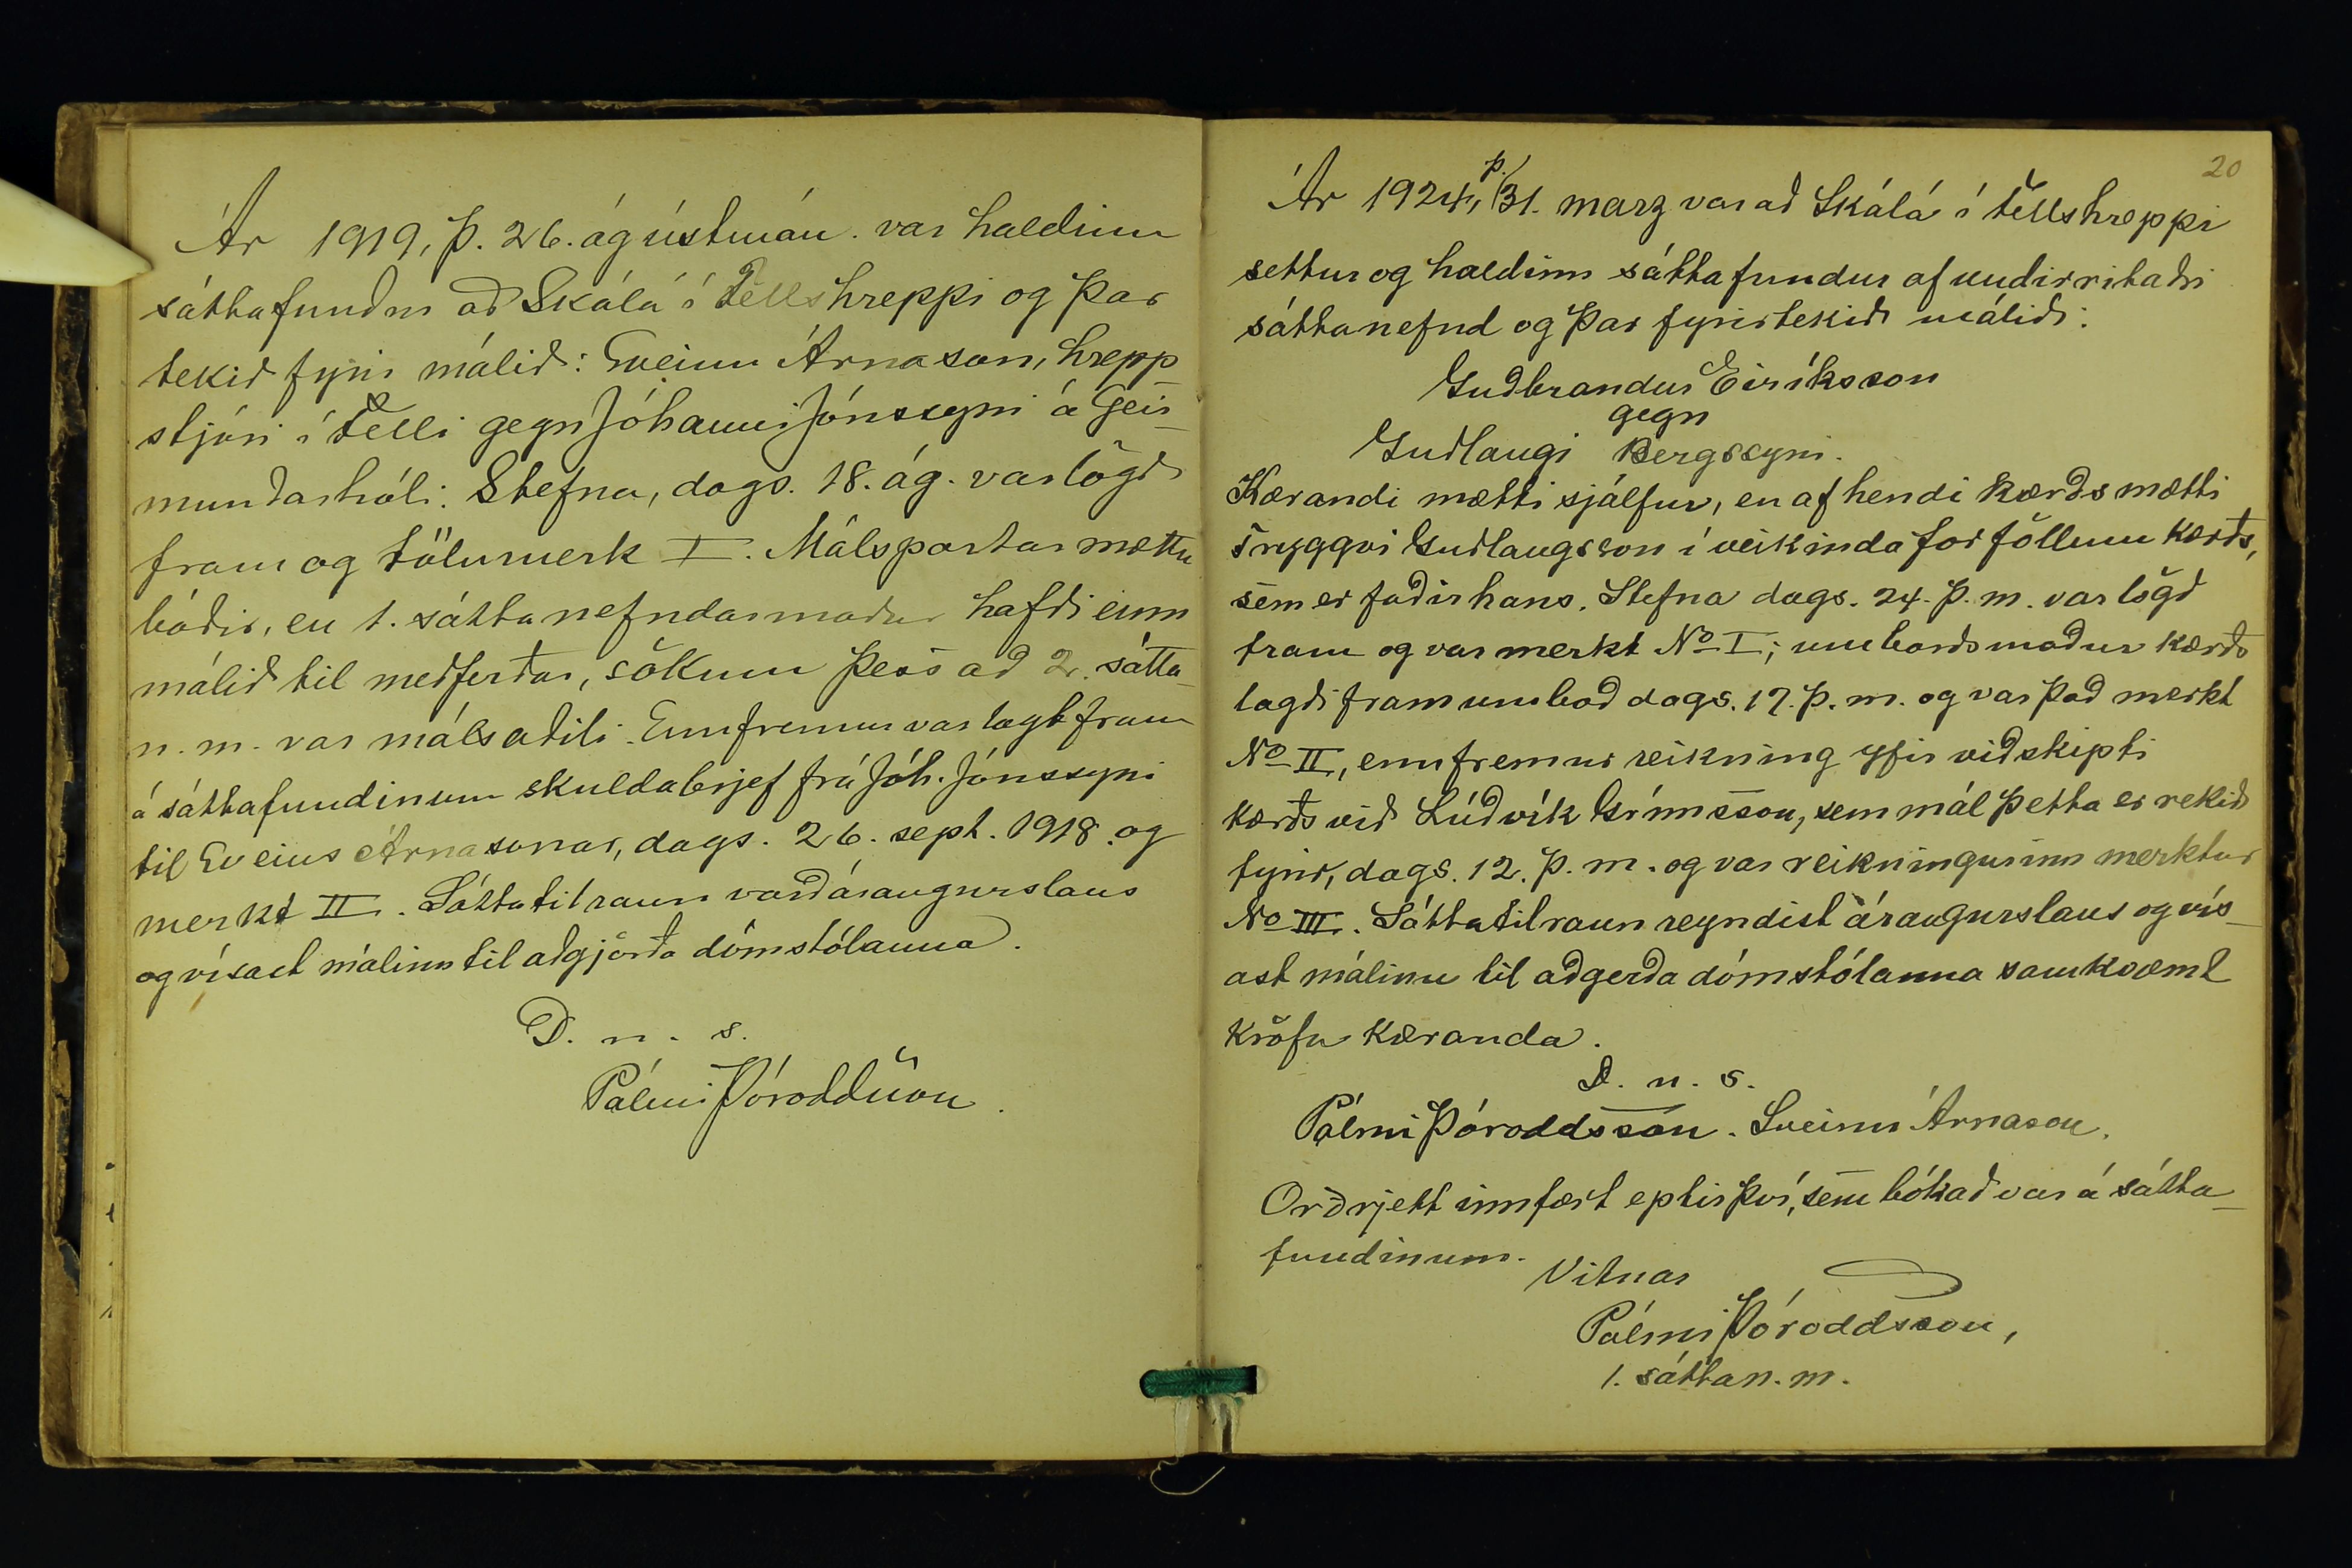 Ár 1919, þ. 26. ágústmán. var haldinn
sáttafundur að Skálá í Fellshreppi og þar
tekið fyrir málið: Sveinn Árnason, hrepp
stjóri í Felli gegn Jóhanni Jónssyni á Geir-
mundarhóli. Stefna, dags. 18. ág. var lögð
fram og tölumerk I. Málspartar mættu
báðir, en 1. sáttanefndarmaður hafði einn
málið til meðferðar, sökum þess að 2. sátta-
n. m. var málsaðili. Ennfremur var lagt fram
á sáttafundinum skuldabrjef frá Jóh. Jónssyni
til Sveins Árnasonar, dags. 26. sept. 1918 og
merkt II. Sáttatilraun varð árangurslaus
og vísast málinu til aðgjörða dómstólanna.
D. u. s.
Pálmi Þóroddsson.
20
Ár 1924, þ. 31. marz var að Skálá í Fellshreppi
settur og haldinn sáttafundur af undirritaðri
sáttanefnd og þar fyrirtekið málið:
Guðbrandur Eiríksson
gegn
Guðlaugi Bergssyni.
Kærandi mætti sjálfur, en af hendi kærðs mætti
Tryggvi Guðlaugsson í veikindaforföllum kærðs,
sem er faðir hans. Stefna dags. 24. þ. m. var lögð
fram og var merkt No I; umboðsmaður kærðs
lagði fram umboð dags. 17. þ. m. og var það merkt
No II, ennfremur reikning yfir viðskipti
kærðs við Lúðvík Grímsson, sem mál þetta er rekið
fyrir, dags. 12. þ. m. og var reikningurinn merktur
No III. Sáttatilraun reyndist árangurslaus og vís-
ast málinu til aðgerða dómstólanna samkvæmt
kröfu kæranda.
D. u. s.
Pálmi Þóroddsson. Sveinn Árnason.
Orðrjett innfært eptir því, sem bókað var á sátta-
fundinum.
Vitnar
Pálmi Þóroddsson,
1. sáttan. m.